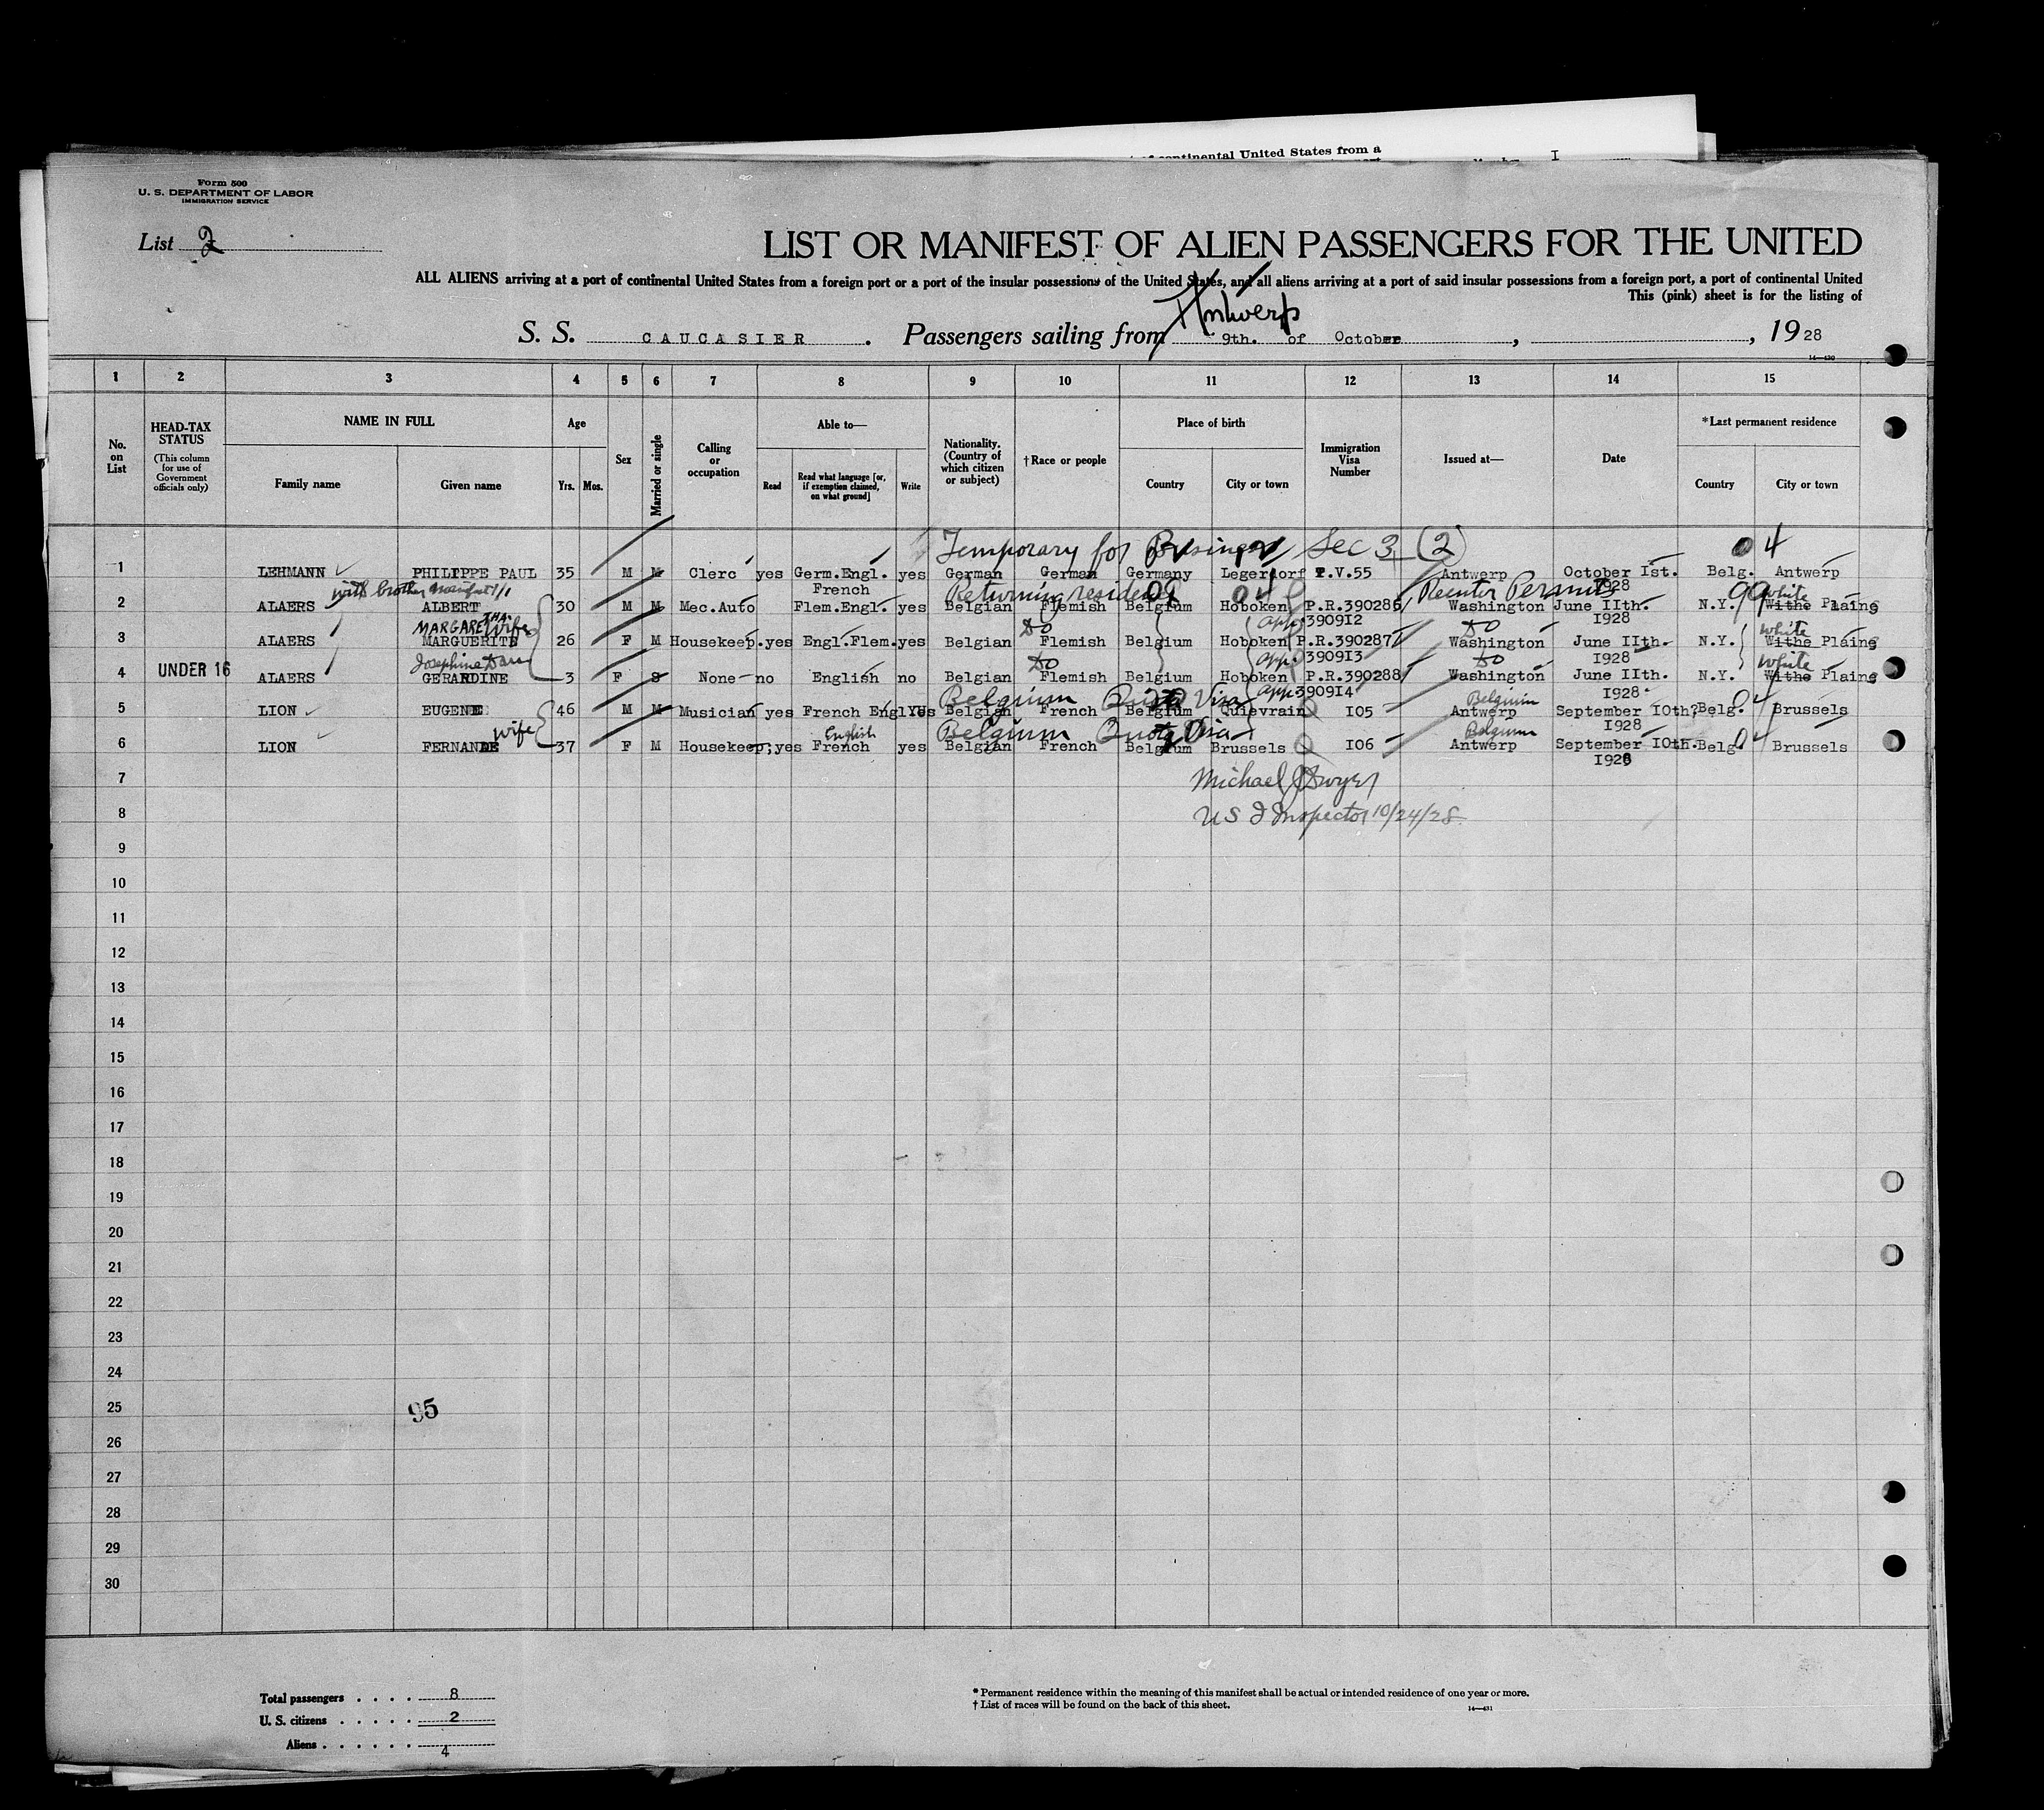 of continental United States from a
I
Form 500
U. S. DEPARTMENT OF LABOR
IMMIGRATION SERVICE
List 2
LIST OR MANIFEST OF ALIEN PASSENGERS FOR THE UNITED
ALL ALIENS arriving at a port of continental United States from a foreign port or a port of the insular possessions of the United States, and all aliens arriving at a port of said insular possessions from a foreign port, a port of continental United
This (pink) sheet is for the listing of
Antwerp
S. S. CAUCASIER . Passengers sailing from 9th. of October , , 19 28
14—430
1 2 3 4 5 6 7 8 9 10 11 12 13 14 15
No. on List HEAD-TAX STATUS (This column for use of Government officials only) NAME IN FULL Family name Given name Age Yrs. Mos. Sex Married or single Calling or occupation Able to— Read Read what language [or, if exemption claimed, on what ground] Write Nationality. (Country of which citizen or subject) †Race or people Place of birth Country City or town Immigration Visa Number Issued at— Date *Last permanent residence Country City or town
Temporary for Business Sec 3 (2) 04
1 LEHMANN PHILIPPE PAUL 35 M M Clerc yes Germ.Engl. French yes German German Germany Legerdorf P.V.55 Antwerp October Ist. 1928 Belg. Antwerp
with brother manifest 1/1 Returning resident 04 Reenter Permits 99 white
2 ALAERS ALBERT 30 M M Mec.Auto Flem.Engl. yes Belgian Flemish Belgium Hoboken P.R.390286 Washington June IIth. 1928 N.Y. Withe Plains
MARGARETHA wife Do app. 3909I2 Do white
3 ALAERS MARGUERITE 26 F M Housekeep. yes Engl.Flem. yes Belgian Flemish Belgium Hoboken P.R.390287 Washington June IIth. 1928 N.Y. Withe Plains
Josephine Do app. 3909I3 Do white
4 UNDER 16 ALAERS GERARDINE 3 F S None no English no Belgian Flemish Belgium Hoboken P.R.390288 Washington June IIth. 1928 N.Y. Withe Plains
Belgium Quota Visa app. 3909I4 Belgium 04
5 LION EUGENE 46 M M Musician yes French Engl yes Belgian French Belgium Quievrain I05 Antwerp September IOth. 1928 Belg. Brussels
wife English Belgium Quota Visa Belgium 04
6 LION FERNANDE 37 F M Housekeep. yes French yes Belgian French Belgium Brussels I06 Antwerp September IOth. 1928 Belg. Brussels
7 Michael J Dwyer
8 US I Inspector 10/24/28
9
10
11
12
13
14
15
16
17
18
19
20
21
22
23
24
25 95
26
27
28
29
30
Total passengers . . . . 8
U. S. citizens . . . . . 2
Aliens . . . . . . 4
* Permanent residence within the meaning of this manifest shall be actual or intended residence of one year or more.
† List of races will be found on the back of this sheet.
14—431